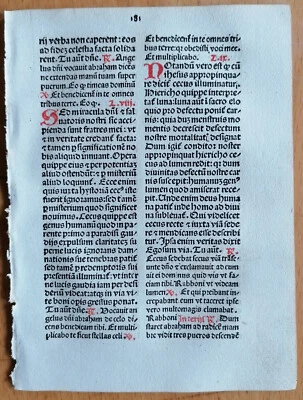 181
rij verba non caperent: eos
ad fidez celestia facta solida
rent. Tu aūt dñe. ℟. An
gelus dñi vocauit abraham dicēs
ne extendas manū tuam super
puerum.
℣. Et benedicentur in te omnes
tribus terre. Eo ꝙ. L. viij.
SEd miracula dñi & sal
uatoris nostri sic acci
pienda sunt fratres mei: vt
& in veritate credant facta: &
tamen p significationē no
bis aliquid innuant. Opera
quippe eius & per potentiā
aliud ostendunt: & p misteriū
aliud loquunt. Ecce enim
quis iuxta historiā cecus iste
fuerit ignoramus: sed tamen
quem p misteriū significet
nouimus. Cecus quippe est
genus humanū quod in pa
rente primo a paradisi gau
dijs expulsum claritatez su
perne lucis ignorans damna
tionis sue tenebras patitur: sed
tamē p redemptoris sui
presentiā illuminat: vt inter
ne lucis gaudia iam per desi
deriū videat: atq in via vi
te boni opis gressus ponat.
Tu aūt dñe. ℟. Vocauit an
gelus dñi abraham de celo di
cens benedicam tibi. Et multi
plicabo te sicut stellas celi. ℣.
Et benedicent in te omnes tri
bus terre: q obedisti voci mee.
Et multiplicabo. L. ix.
NOtandū vero est q cū
ihesus appropinqua
re dicit cecus illuminat.
Hiericho quippe interpreta
tur luna: luna aūt í sacro elo
quio pro defectu ponit car
nis: quia dum menstruis mo
mentis decrescit defectum
nostre mortalitatis designat.
Dum igit conditor noster
appropinquat hiericho ce
cus ad lumen redit: quia dum
diuinitas defectum nostre car
nis suscepit: humanuz genus
lumen quod amiserat recepit.
Vnde enim deus humana
patit inde homo ad diui
na subleuat. Qui videlicet
cecus recte & iuxta viam se
dere & mendicans esse descri
bitur. Ipsa enim veritas dixit
Ego sum via. Tu aūt. ℟.
Cecus sedebat secus viā trāse
unte dño & exclamauit ad eum
& ait illi dominus quid vis vt fa
ciam tibi. Rabboni vt videam
lumen. ℣. Et qui preibant in
crepabant eum vt taceret ipse
vero multo magis clamabat.
Rabboni. Dum
staret abraham ad radicē mam
bre vidit tres pueros descendē